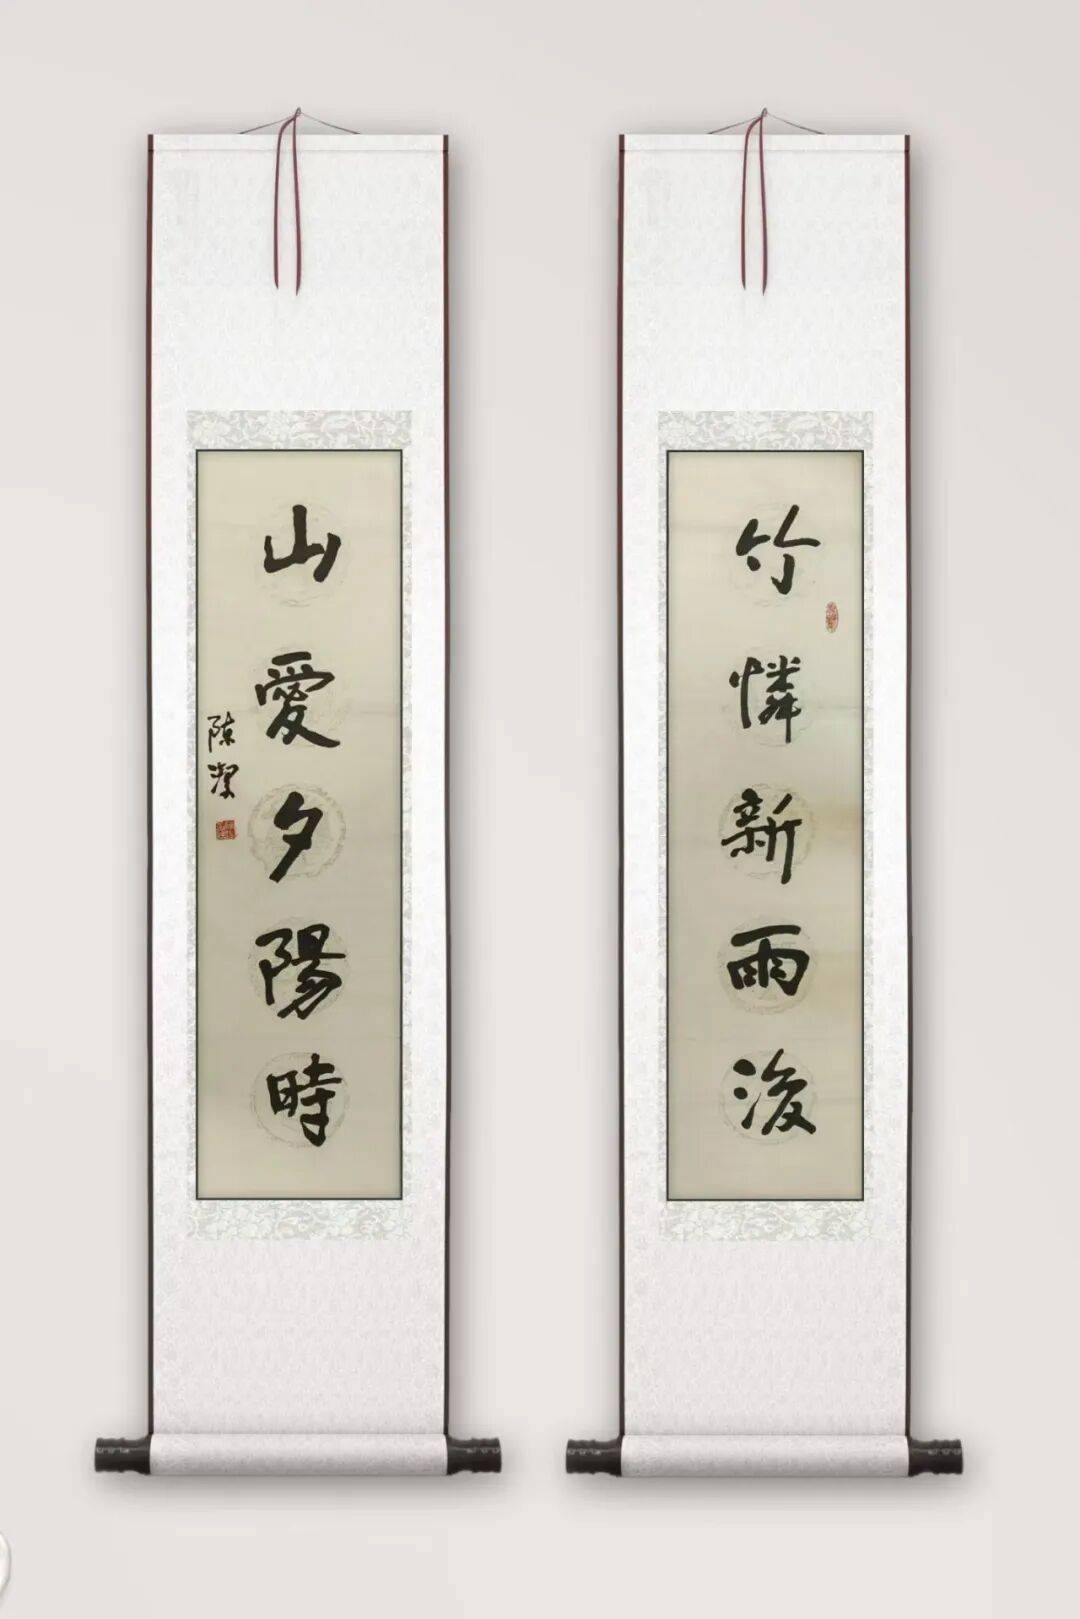 竹憐新雨後
山愛夕陽時
陳潔